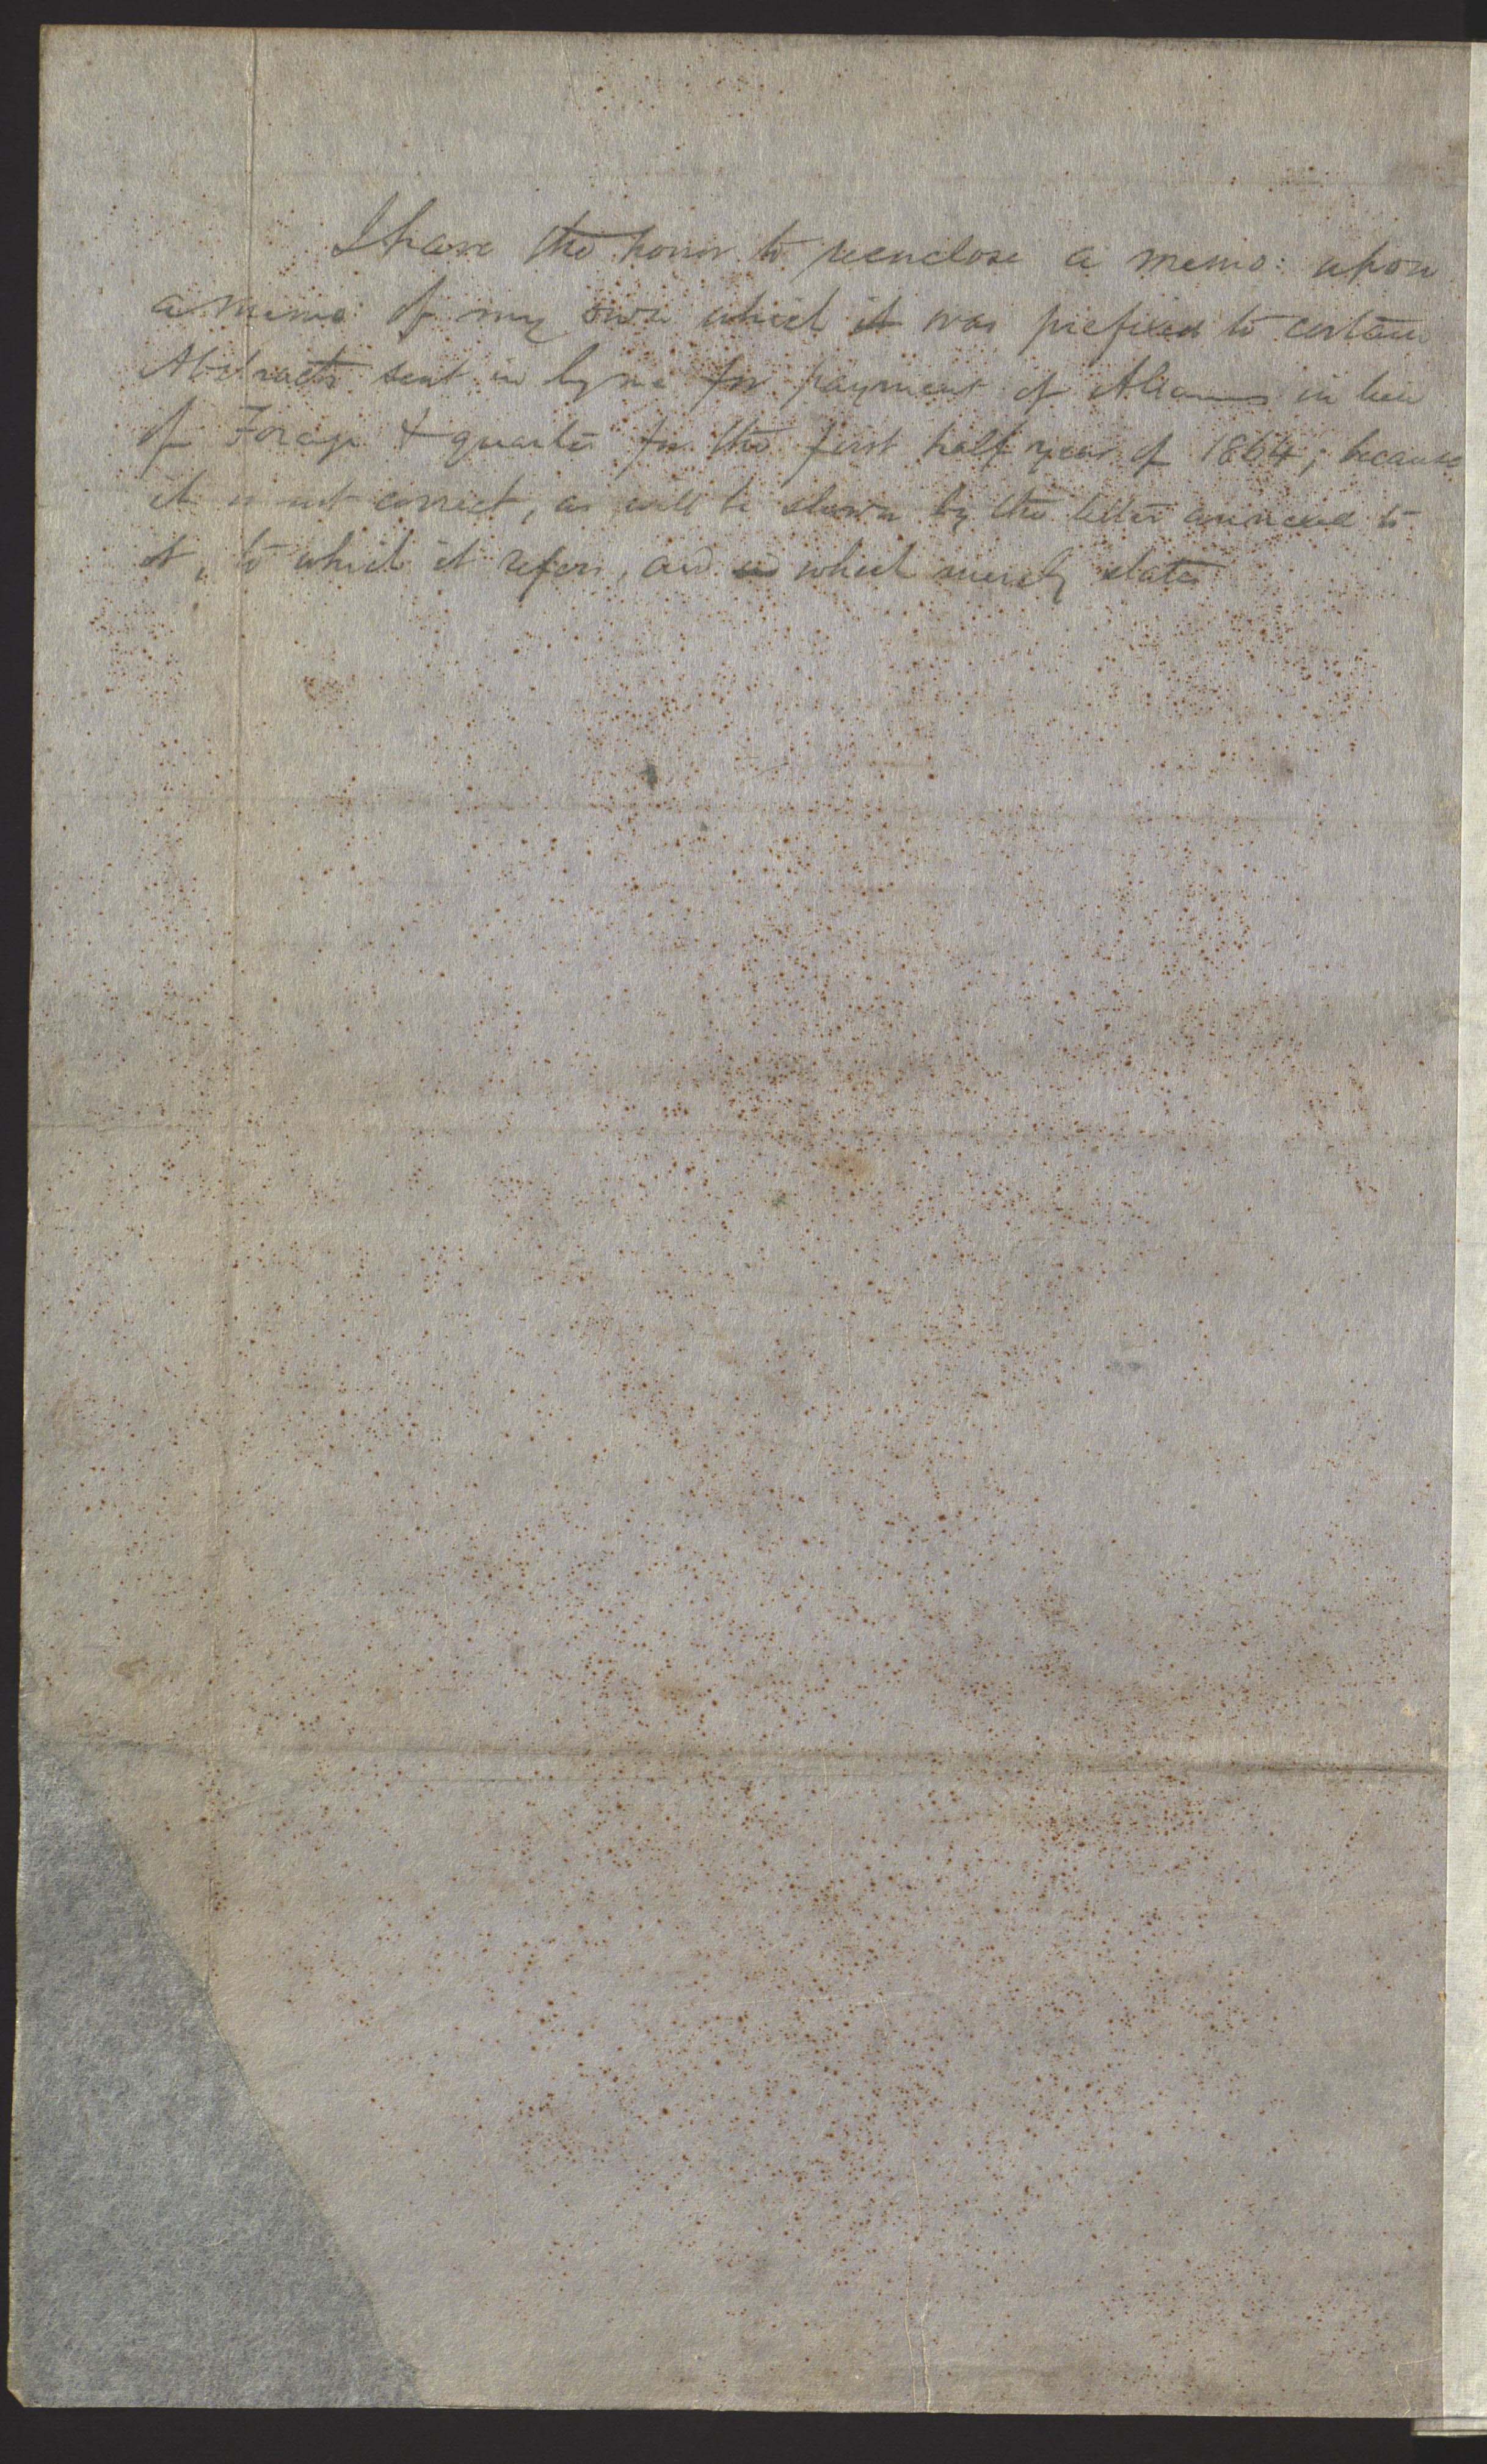 I have the honor to reenclose a memo: upon
a memo: of my own which it was prefixed to certain
Abstracts sent in by me for payment of in lieu
of Forage & quarts for the first half year of 1864; because
it is not correct, as will be shown by the letter annexed to
it, to which it refers, and which merely states